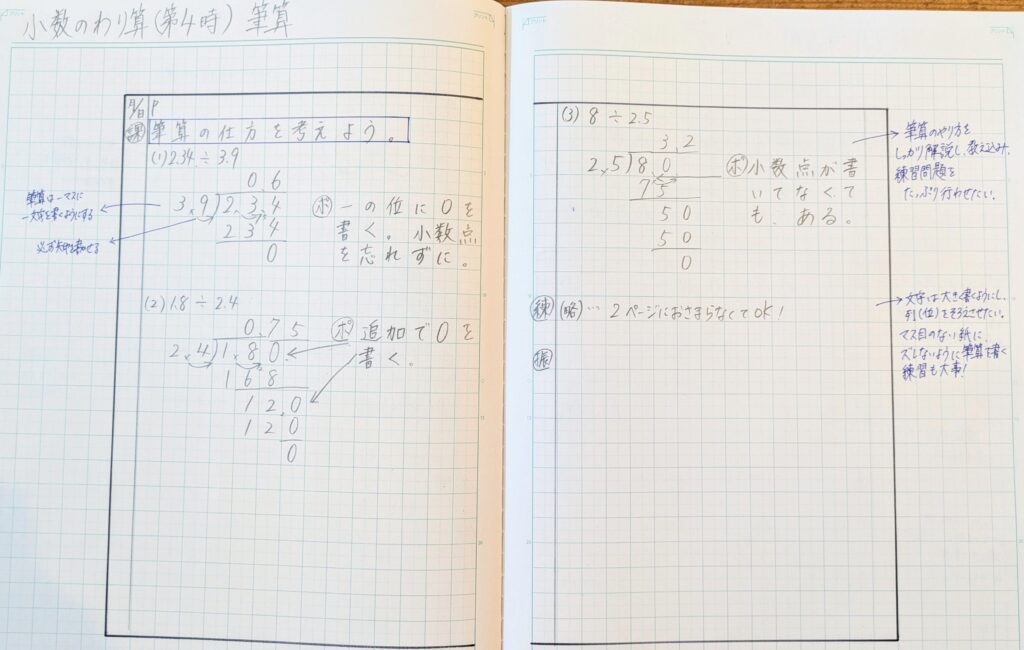 小数のわり算(第4時) 筆算
月/日 P
課 筆算の仕方を考えよう。
(1) 2.34÷3.9
0.6
3.9)2.3.4
234
0
ポ 一の位に0を
書く。小数点
を忘れずに。
筆算は一マスに
一文字を書くようにする
必ず矢印を書かせる
(2) 1.8÷2.4
0.75
2.4)1.80
168
12.0
120
0
ポ 追加で0を
書く。
(3) 8÷2.5
3.2
2.5)8.0
75
50
50
0
ポ 小数点が書
いてなくて
も、ある。
筆算のやり方を
しっかり解説し、教え込み、
練習問題を
たっぷり行わせたい。
練 (略)… 2ページにおさまらなくてOK!
振
文字は大きく書くようにし、
列(位)をそろえさせたい。
マス目のない紙に、
ズレないように筆算を書く
練習も大事!